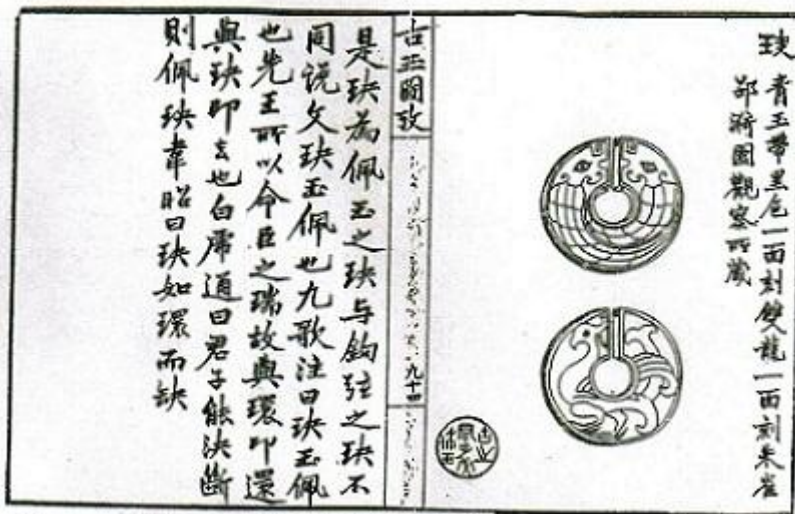 玦
青玉帶黑色一面刻雙龍一面刻朱雀
部漪園觀察所藏
古玉圖攷
九十四
是玦為佩玉之玦与鉤弦之玦不
同說文玦玉佩也九歌注曰玦玉佩
也先王所以命臣之瑞故與環即還
與玦即去也白虎通曰君子能決斷
則佩玦韋昭曰玦如環而缺